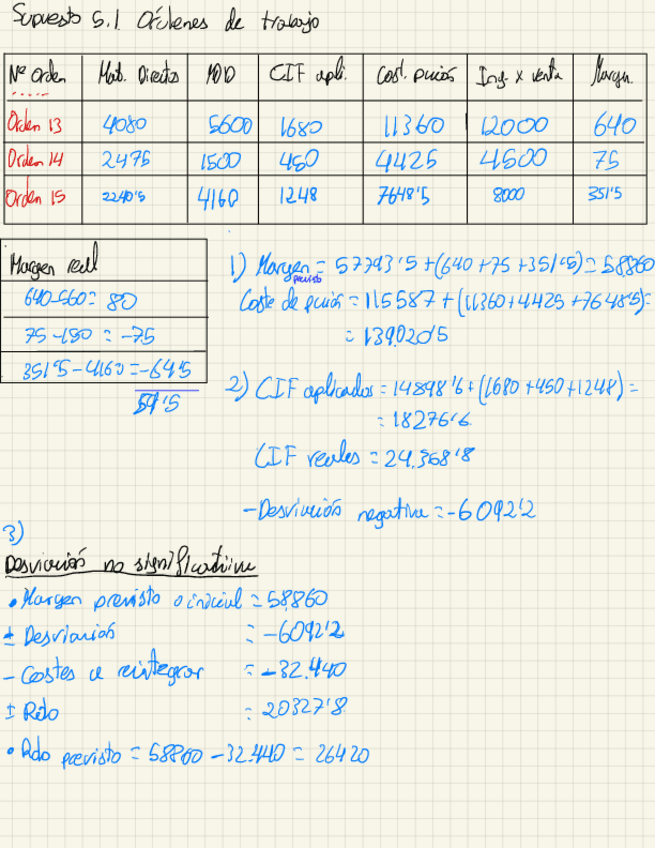 Supuesto 5.1 Órdenes de trabajo
Nº Orden Mat. Directos MOD CIF apli. Cost. pción Ing. x venta Margen
Orden 13 4080 5600 1680 11360 12000 640
Orden 14 2475 1500 450 4425 4500 75
Orden 15 2240'5 4160 1248 7648'5 8000 351'5
Margen real
640-560= 80
75-150 = -75
351'5-4160=-64'5
59'5
1) Margen previsto = 57793'5+(640+75+351'5)=58860
Coste de pción = 115587+(11360+4425+7648'5)=
= 139020'5
2) CIF aplicados = 14898'6+(1680+450+1248)=
= 18276'6
CIF reales = 24.368'8
-Desviación negativa =-6092'2
3)
Desviación no significativa
• Margen previsto o inicial = 58.860
± Desviación = -6092'2
- Costes a reintegrar = -32.440
± Rdo = 20327'8
• Rdo previsto = 58860 -32.440 = 26420